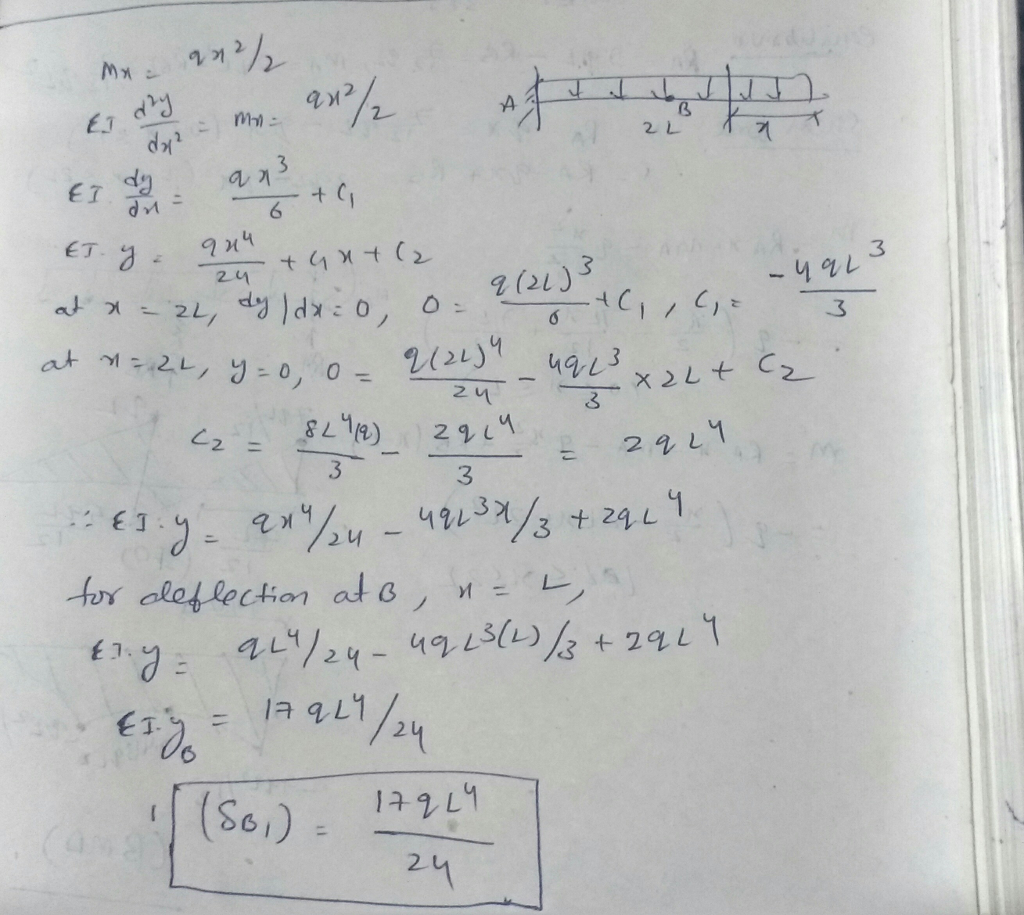 Mx = qx²/2
EI d²y/dx² = Mx = qx²/2
A B 2L x
EI. dy/dx = qx³/6 + C₁
EI. y = qx⁴/24 + C₁x + C₂
at x = 2L, dy/dx = 0, 0 = q(2L)³/6 + C₁, C₁ = -4qL³/3
at x = 2L, y = 0, 0 = q(2L)⁴/24 - 4qL³/3 × 2L + C₂
C₂ = 8L⁴(q)/3 - 2qL⁴/3 = 2qL⁴
∴ EI.y = qx⁴/24 - 4qL³x/3 + 2qL⁴
for deflection at B, x = L,
EI.y = qL⁴/24 - 4qL³(L)/3 + 2qL⁴
EI.y_B = 17qL⁴/24
(δB₁) = 17qL⁴/24